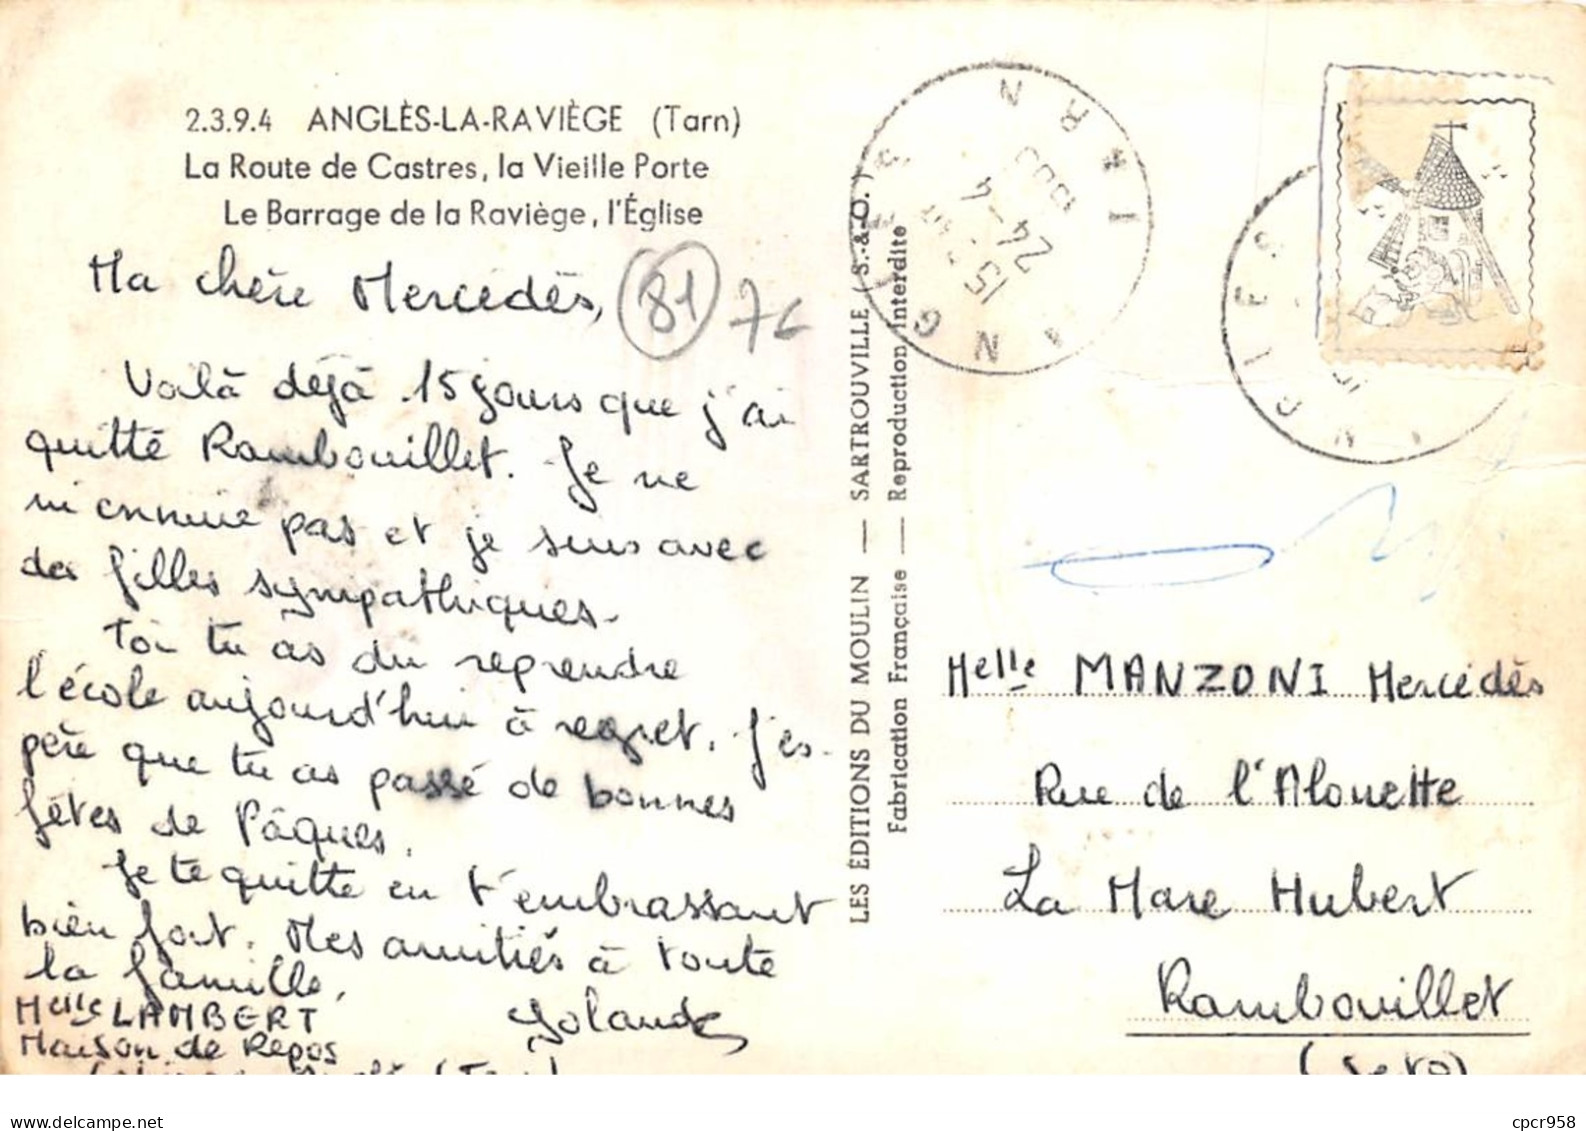 2.3.9.4 ANGLÈS-LA-RAVIÈGE (Tarn)
La Route de Castres, la Vieille Porte
Le Barrage de la Raviège, l'Église
Ma chère Mercédès,
81
Voilà déjà 15 jours que j'ai
quitté Rambouillet. Je ne
m'ennuie pas et je suis avec
des filles sympathiques.
Toi tu as du reprendre
l'école aujourd'hui à regret. J'es-
père que tu as passé de bonnes
fêtes de Pâques.
Je te quitte en t'embrassant
bien fort. Mes amitiés à toute
la famille,
Yolande
Melle LAMBERT
Maison de Repos
LES ÉDITIONS DU MOULIN — SARTROUVILLE (S.-&-O.)
Fabrication Française — Reproduction Interdite
15
24-4
TARN
ANGLES
Melle MANZONI Mercédès
Rue de l'Alouette
La Mare Hubert
Rambouillet
(S et O)
cpcr958